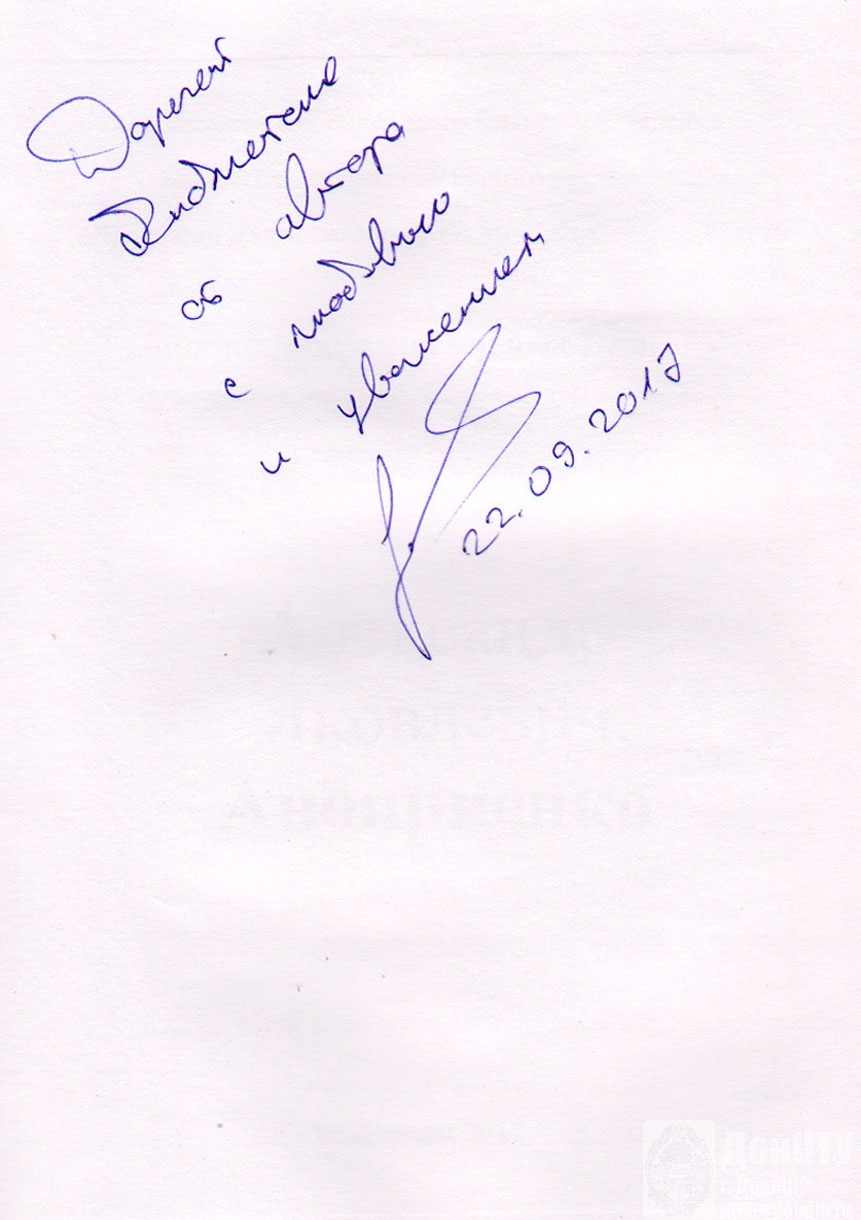 Дорогой
библиотеке
от автора
с любовью
и уважением
22.09.2017
ДонНТУ